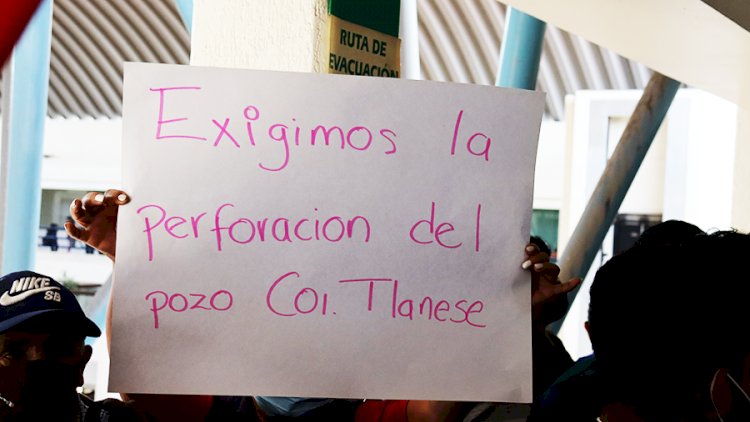 RUTA DE
EVACUACIÓN
Exigimos la
perforacion del
pozo Coi. Tlanese
NIKE
SB